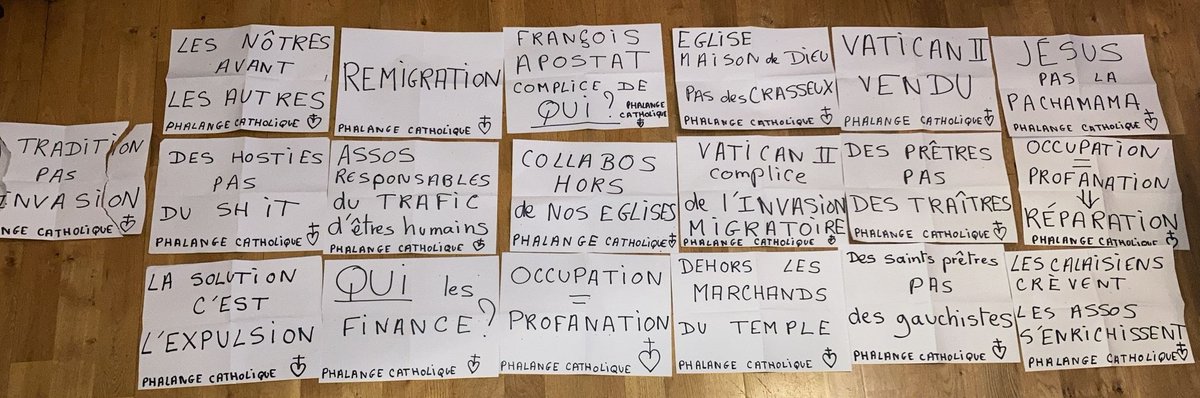 LES NÔTRES
AVANT
LES AUTRES
PHALANGE CATHOLIQUE
REMIGRATION
PHALANGE CATHOLIQUE
FRANÇOIS
APOSTAT
COMPLICE DE
QUI ?
PHALANGE
CATHOLIQUE
EGLISE
MAISON de DIEU
PAS des CRASSEUX
PHALANGE CATHOLIQUE
VATICAN II
VENDU
PHALANGE CATHOLIQUE
JÉSUS
PAS LA
PACHAMAMA
PHALANGE CATHOLIQUE
TRADITION
PAS
INVASION
PHALANGE CATHOLIQUE
DES HOSTIES
PAS
DU SHIT
PHALANGE CATHOLIQUE
ASSOS
RESPONSABLES
du TRAFIC
d'êtres humains
PHALANGE CATHOLIQUE
COLLABOS
HORS
de NOS EGLISES
PHALANGE CATHOLIQUE
VATICAN II
complice
de l'INVASION
MIGRATOIRE
PHALANGE CATHOLIQUE
DES PRÊTRES
PAS
DES TRAÎTRES
PHALANGE CATHOLIQUE
OCCUPATION
=
PROFANATION
⇓
RÉPARATION
PHALANGE CATHOLIQUE
LA SOLUTION
C'EST
L'EXPULSION
PHALANGE CATHOLIQUE
QUI les
FINANCE ?
PHALANGE CATHOLIQUE
OCCUPATION
=
PROFANATION
PHALANGE CATHOLIQUE
DEHORS LES
MARCHANDS
DU TEMPLE
PHALANGE CATHOLIQUE
Des saints prêtres
PAS
des gauchistes
PHALANGE CATHOLIQUE
LES CALAISIENS
CRÈVENT
LES ASSOS
S'ENRICHISSENT
PHALANGE CATHOLIQUE